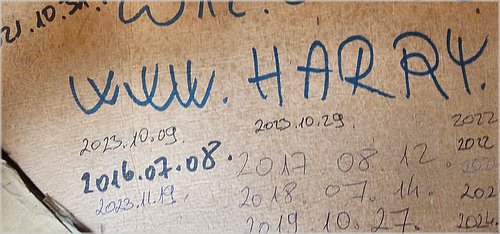 21.10.31.
WWW.HARRY.
2023.10.09. 2023.10.29. 2022
2016.07.08. 2017 08 12. 2022
2023.11.19. 2018.07.14. 202
2019.10.27. 2024.